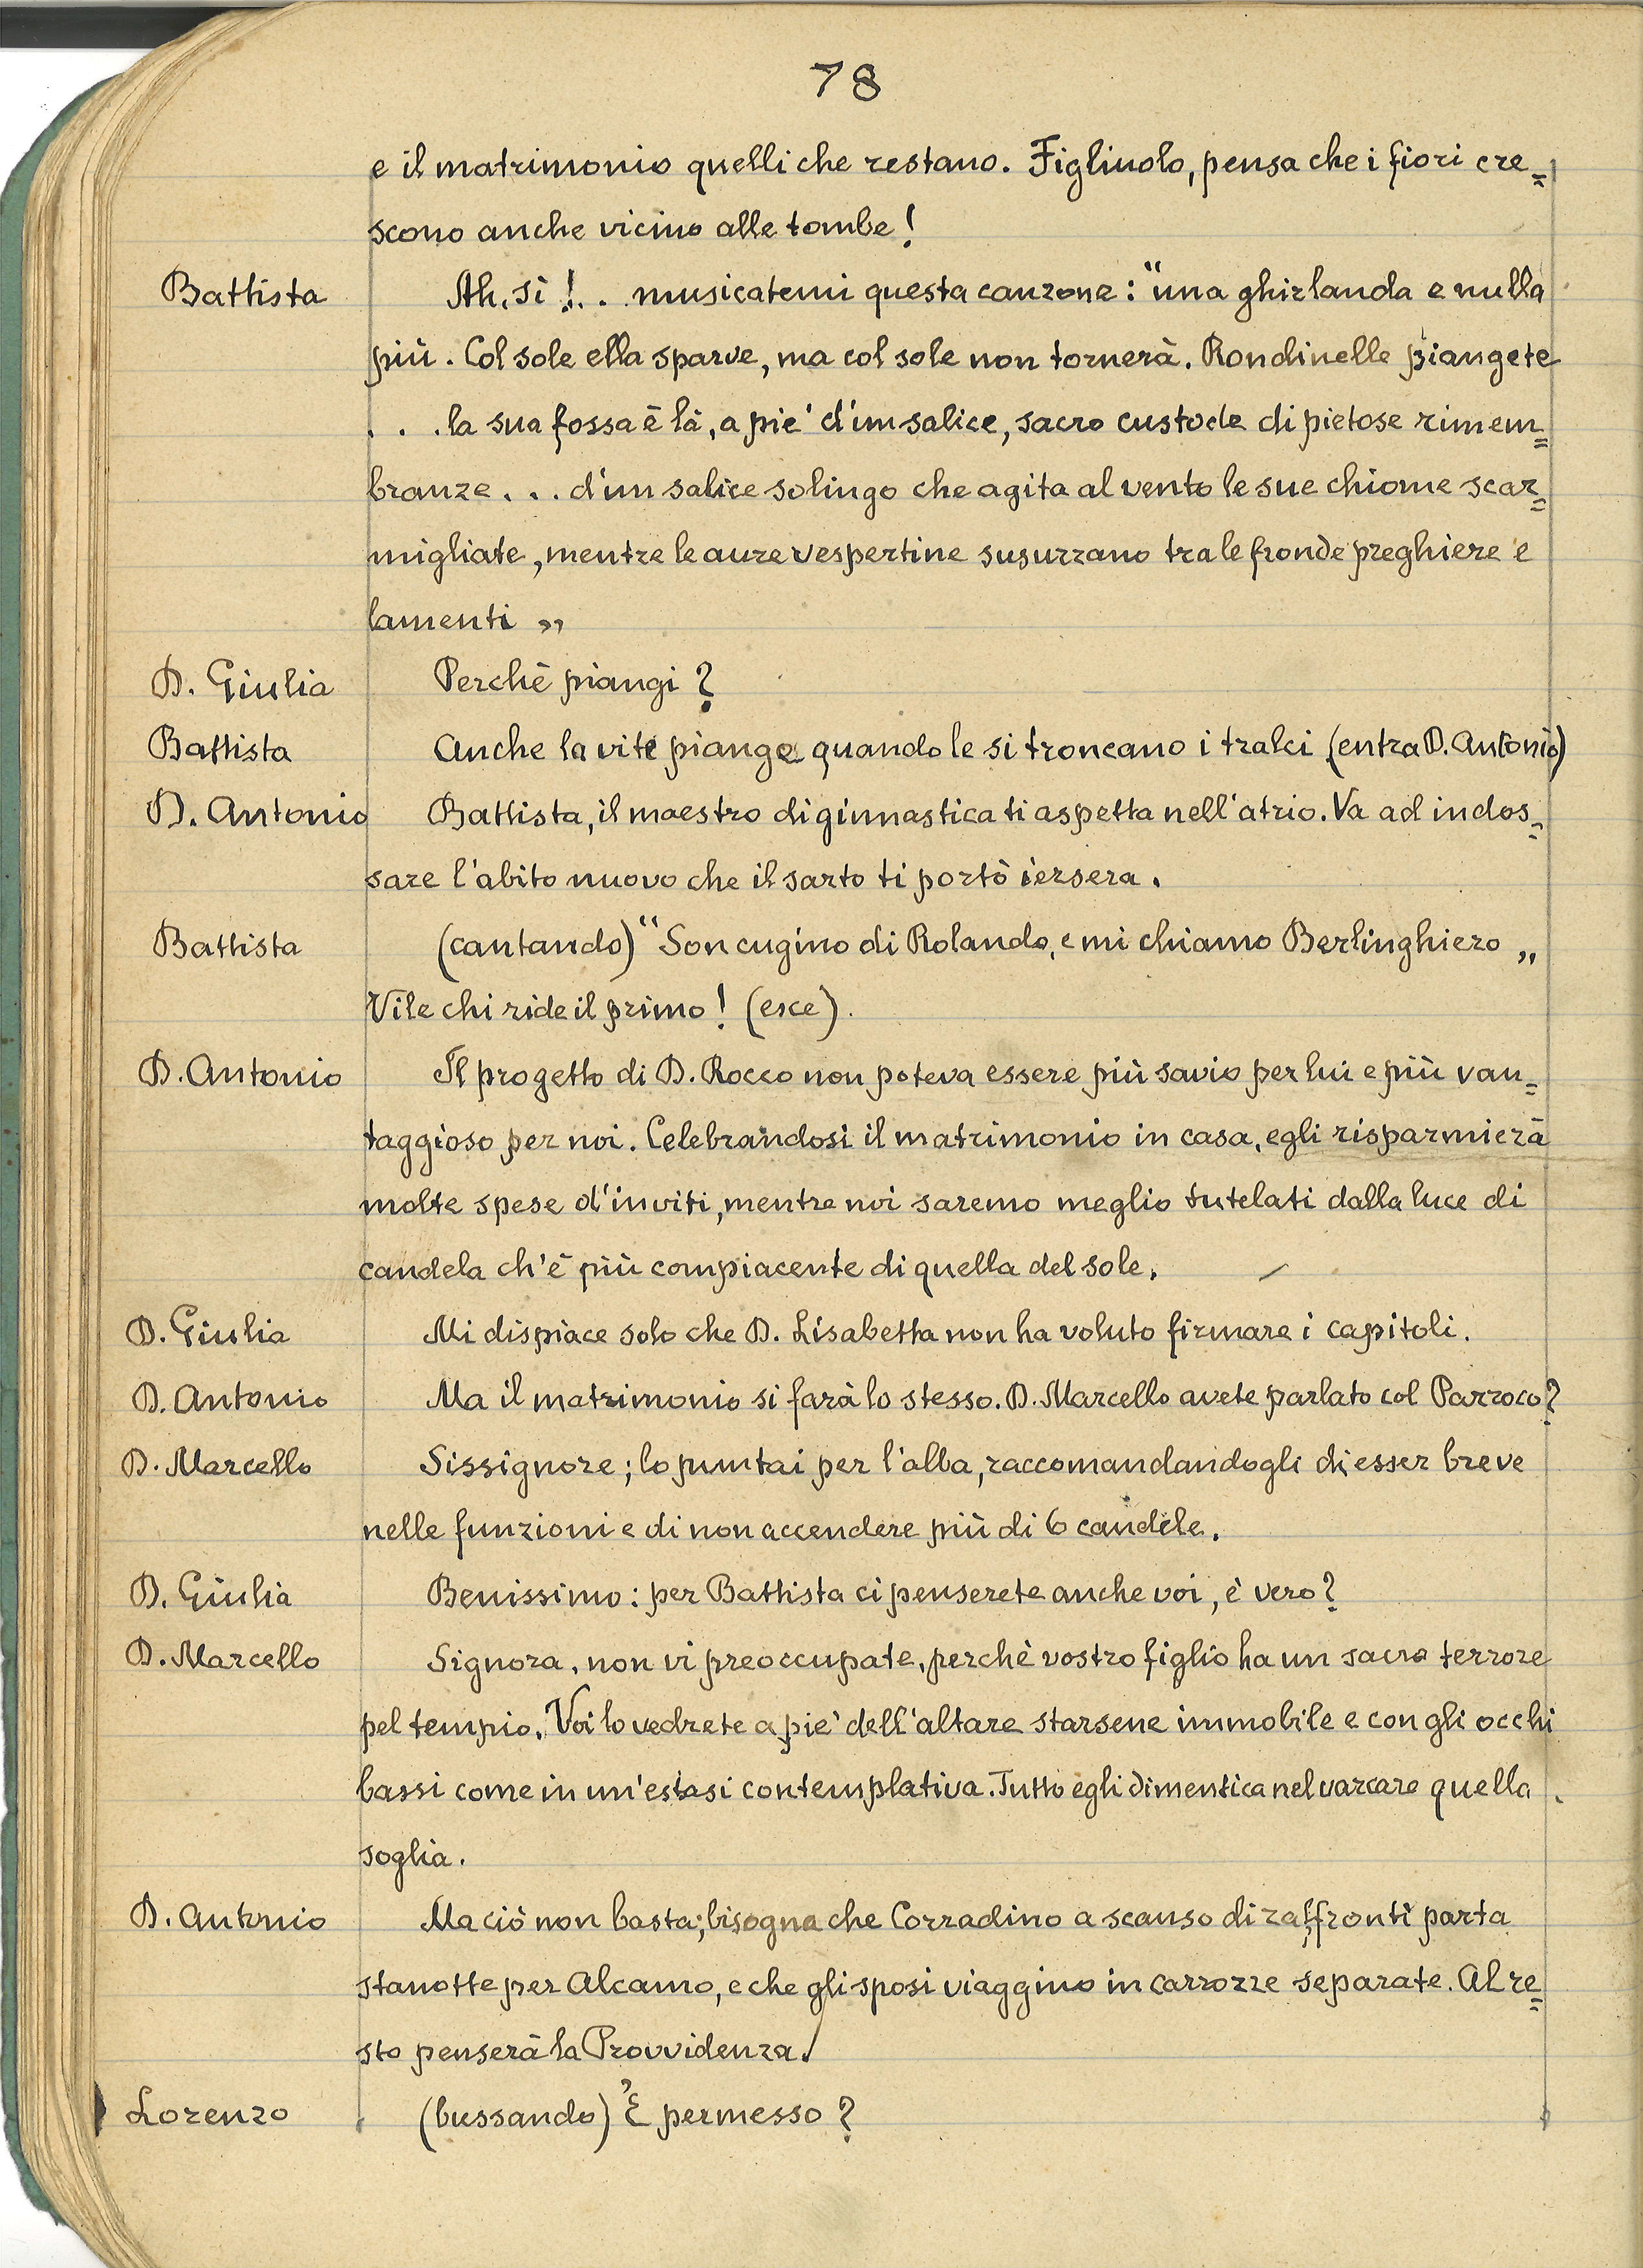 78
e il matrimonio quelli che restano. Figliuolo, pensa che i fiori cre=
scono anche vicino alle tombe!
Battista Ah, sì!... musicatemi questa canzone: "una ghirlanda e nulla
più. Col sole ella sparve, ma col sole non tornerà. Rondinelle piangete
... la sua fossa è là, a pie' d'un salice, sacro custode di pietose rimem=
branze... d'un salice solingo che agita al vento le sue chiome scar=
migliate, mentre le aure vespertine susurrano tra le fronde preghiere e
lamenti „
D. Giulia Perchè piangi?
Battista Anche la vite piange quando le si troncano i tralci (entra D. Antonio)
D. Antonio Battista, il maestro di ginnastica ti aspetta nell'atrio. Va ad indos=
sare l'abito nuovo che il sarto ti portò iersera.
Battista (cantando) "Son cugino di Rolando, e mi chiamo Berlinghiero „
Vile chi ride il primo! (esce).
D. Antonio Il progetto di D. Rocco non poteva essere più savio per lui e più van=
taggioso per noi. Celebrandosi il matrimonio in casa, egli risparmierà
molte spese d'inviti, mentre noi saremo meglio tutelati dalla luce di
candela ch'è più compiacente di quella del sole.
D. Giulia Mi dispiace solo che D. Lisabetta non ha voluto firmare i capitoli.
D. Antonio Ma il matrimonio si farà lo stesso. D. Marcello avete parlato col Parroco?
D. Marcello Sissignore; lo puntai per l'alba, raccomandandogli di esser breve
nelle funzioni e di non accendere più di 6 candele.
D. Giulia Benissimo: per Battista ci penserete anche voi, è vero?
D. Marcello Signora, non vi preoccupate, perchè vostro figlio ha un sacro terrore
pel tempio. Voi lo vedrete a pie' dell'altare starsene immobile e con gli occhi
bassi come in un'estasi contemplativa. Tutto egli dimentica nel varcare quella
soglia.
D. Antonio Ma ciò non basta; bisogna che Corradino a scanso di raffronti parta
stanotte per Alcamo, e che gli sposi viaggino in carrozze separate. Al re=
sto penserà la Provvidenza!
Lorenzo (bussando) È permesso?